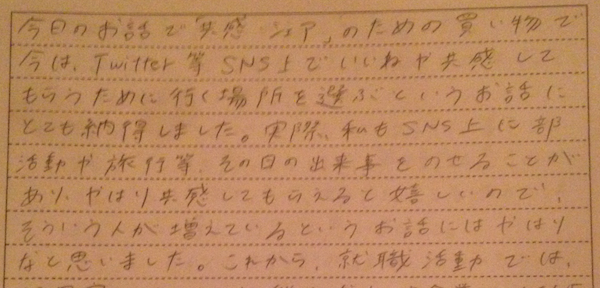 今日のお話で「共感 シェア」のための買い物で
今は、Twitter等SNS上でいいねや共感して
もらうために行く場所を選ぶというお話に
とても納得しました。実際、私もSNS上に部
活動や旅行等、その日の出来事をのせることが
あり、やはり共感してもらえると嬉しいので、
そういう人が増えているというお話にはやはり
なと思いました。これから、就職活動では、